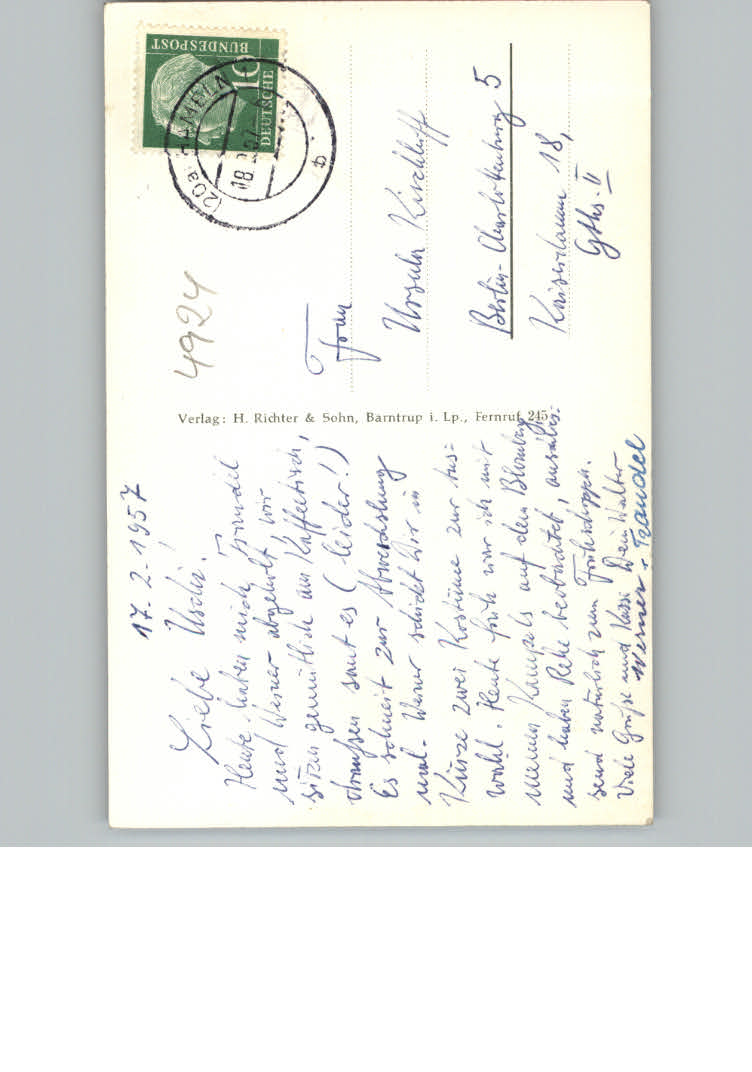 17.2.1957
Liebe Uschi!
Heute haben mich Traudel
und Werner abgeholt wir
sitzen gemütlich am Kaffeetisch,
draußen saut es (leider!)
Es schneit zur Abwechslung
mal. Werner schickt Dir in
Kürze zwei Kostüme zur Aus-
wahl. Heute früh war ich mit
meinen Kumpels auf dem Blomberg
und haben Rehe beobachtet,
send natürlich zum Frühschoppen.
Viele Grüße und Kussi Dein Walter
Werner + Traudel
Verlag: H. Richter & Sohn, Barntrup i. Lp., Fernruf 245
4924
DEUTSCHE
BUNDESPOST
10
(20a) HAMELN
18.2.57
b
Frau
Ursula Kirchhoff
Berlin-Charlottenburg 5
Kaiserdamm 18,
Gths. II